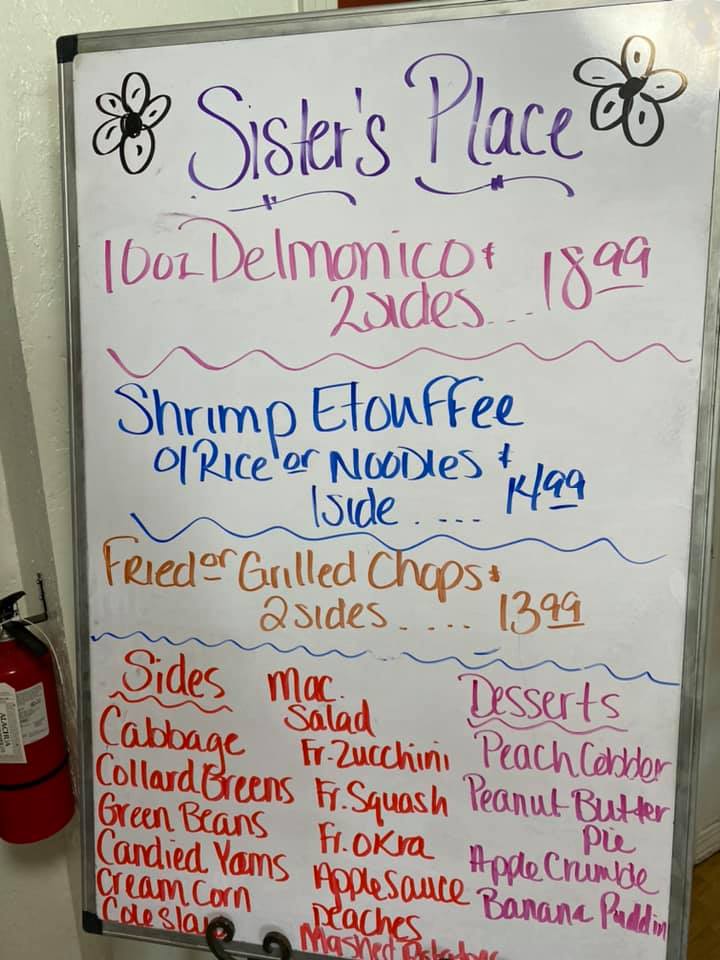 Sister's Place
10oz Delmonico &
2 sides.... 18 99
Shrimp Etouffee
o/ Rice or Noodles &
1 side .... 14 99
Fried or Grilled Chops &
2 sides..... 13 99
Sides
Cabbage
Collard Greens
Green Beans
Candied Yams
Cream Corn
Cole Slaw
Mac.
Salad
Fr. Zucchini
Fr. Squash
Fr. Okra
Apple Sauce
Peaches
Mashed Potatoes
Desserts
Peach Cobbler
Peanut Butter
Pie
Apple Crumble
Banana Puddin
ALACHUA